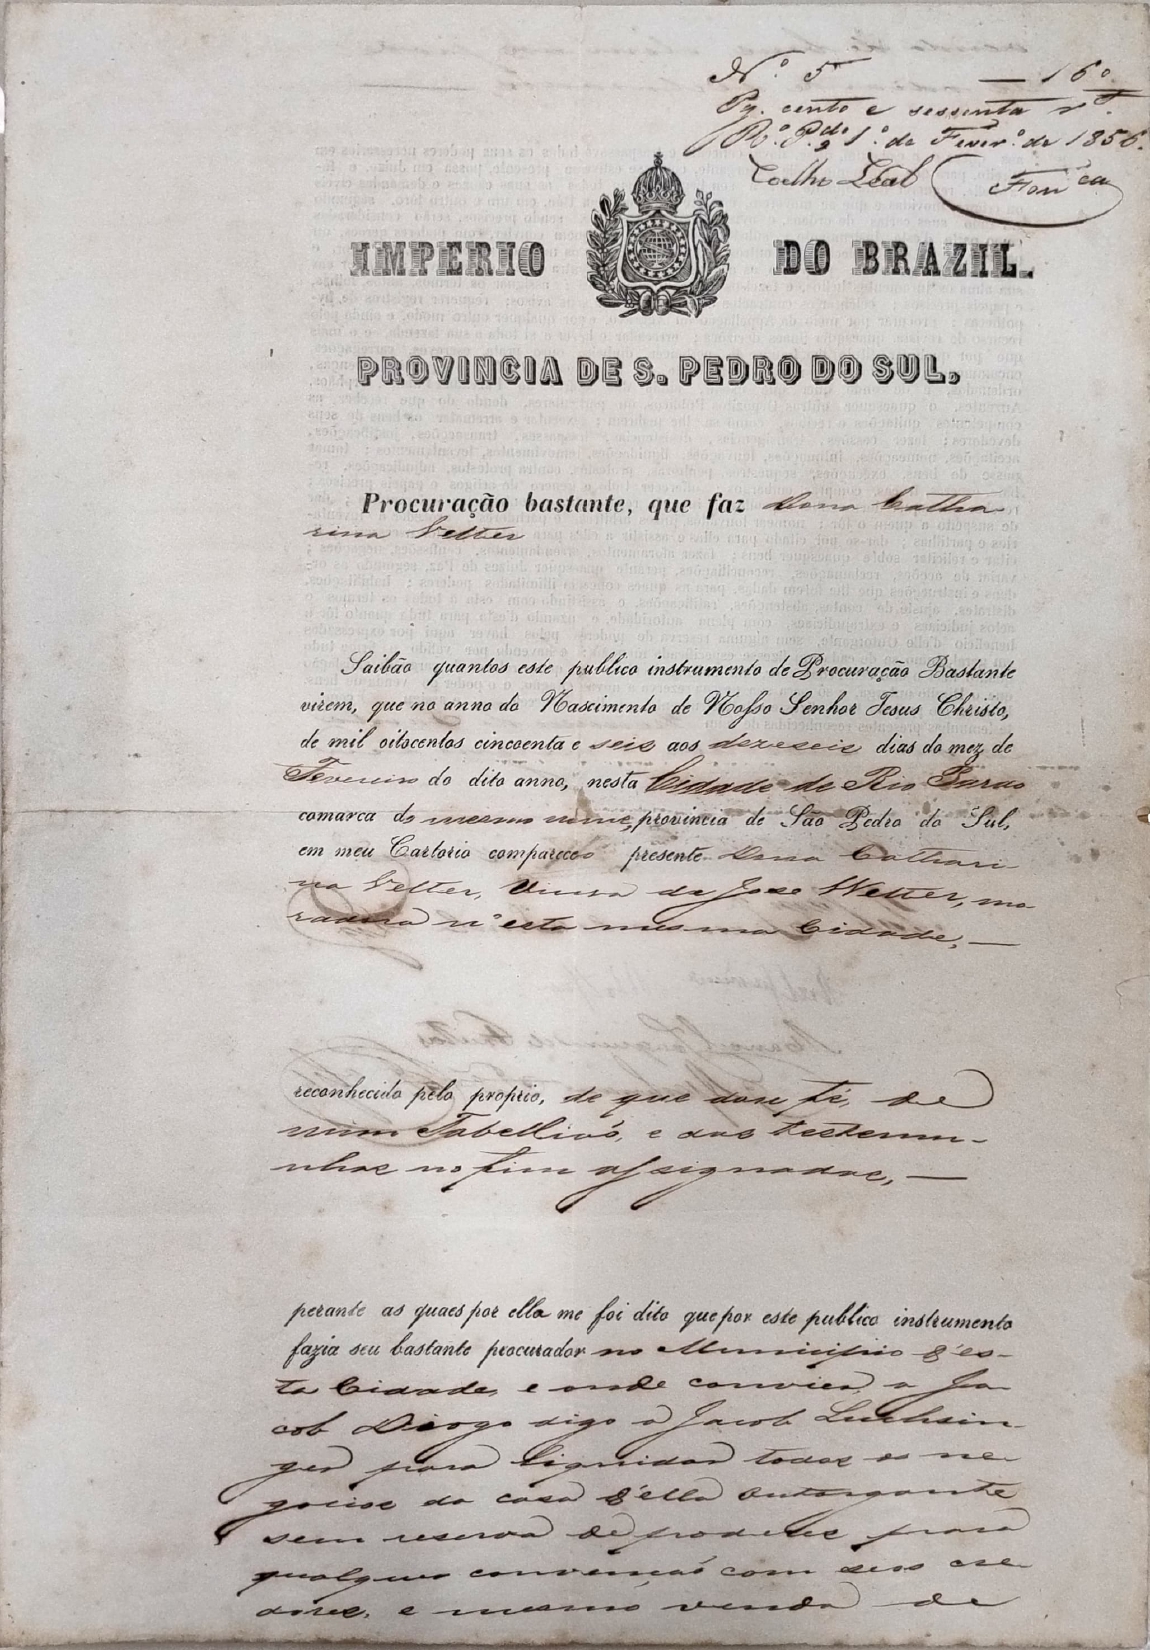 Nº 5 — 160
Pg. cento e sessenta rs.
Rº. Pdo 1º. de Feverº. de 1856.
Coelho Leal Fonca
IMPERIO DO BRAZIL.
PROVINCIA DE S. PEDRO DO SUL.
Procuração bastante, que faz Dona Catha
rina Vetter
Saibão quantos este publico instrumento de Procuração Bastante
virem, que no anno do Nascimento de Nosso Senhor Jesus Christo,
de mil oitocentos cincoenta e seis aos dezeseis dias do mez de
Fevereiro do dito anno, nesta Cidade de Rio Pardo
comarca do mesmo nome, provincia de São Pedro do Sul,
em meu Cartorio compareceo presente Dona Cathari
na Vetter, Viuva de Jose Wetter, mo
radora n'esta mesma Cidade, —
reconhecida pela propria, de que dou fé, de
mim Tabellião, e das testemu-
nhas no fim assignadas, —
perante as quaes por ella me foi dito que por este publico instrumento
fazia seu bastante procurador no Municipio d'es-
ta Cidade, e onde convier, a Ja
cob Diogo digo a Jacob Luchsin-
ger para liquidar todos os ne
gocios da casa d'ella Outorgante
sem reserva de poderes para
qualquer convenção com seus cre
dores, e mesmo venda de